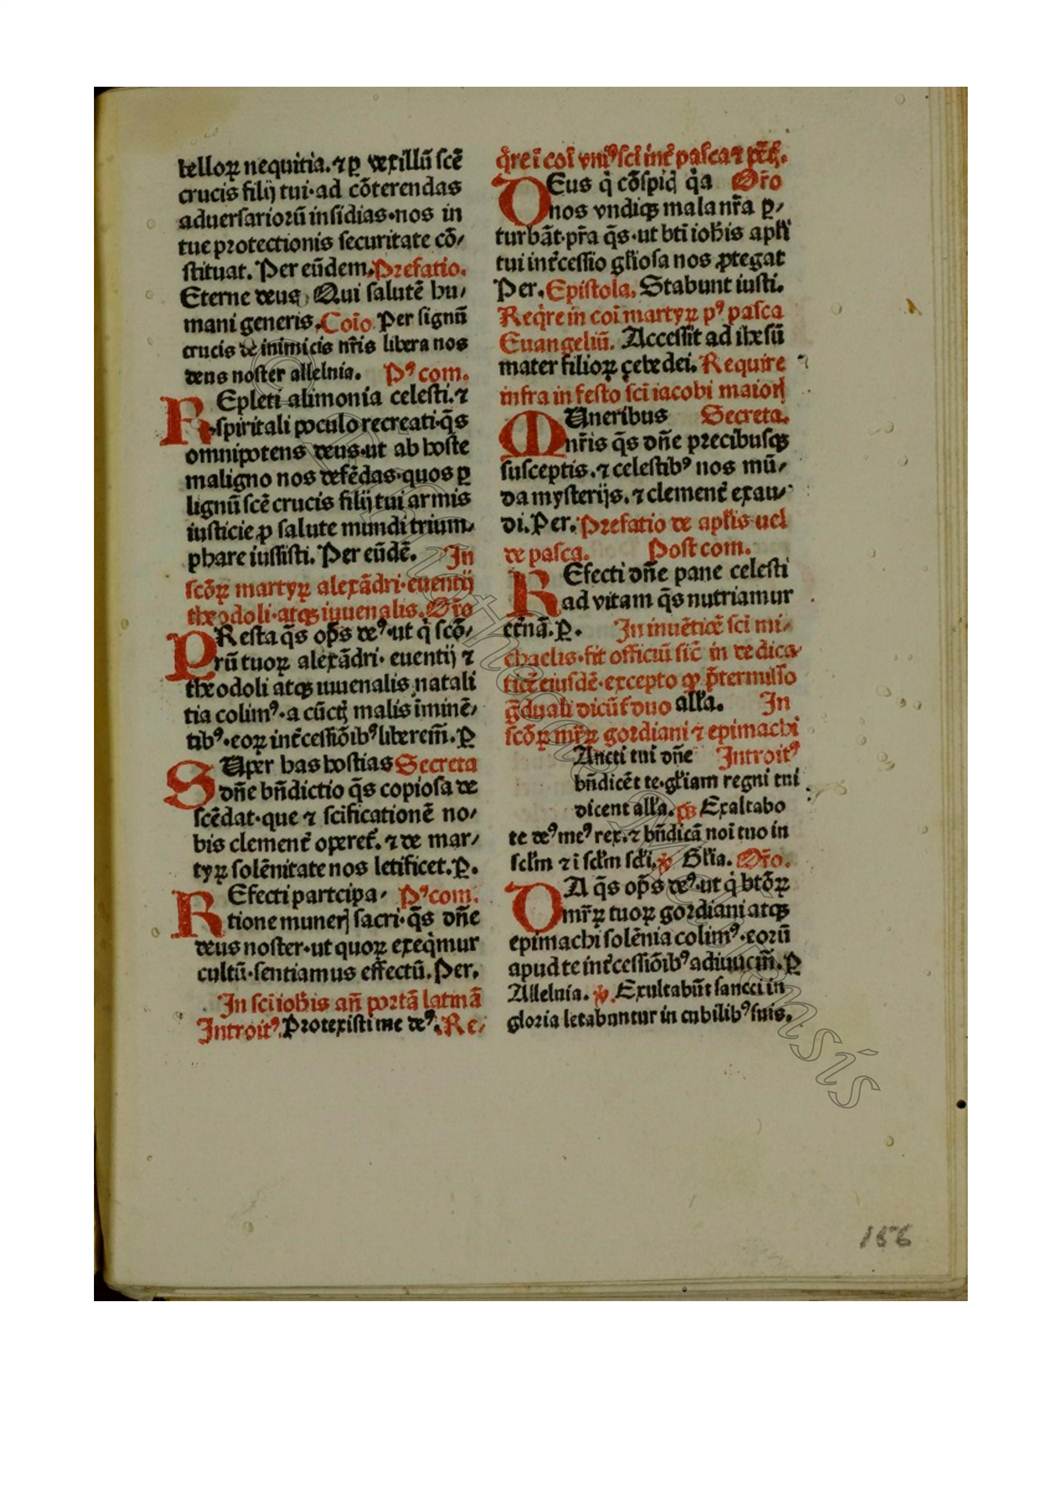 belloꝝ nequitia.⁊ ꝑ vexillū scē
crucis filij tui·ad cōterendas
aduersarioꝝū insidias·nos in
tue protectionis securitate cō/
stituat. Per eūdem.Prefatio.
Eterne deus Qui salutē hu/
mani generis.Coīo Per signū
crucis de inimicis nr̄is libera nos
deus noster alleluia. Pꝰ com.
REpleti alimonia celesti.⁊
spiritali poculo recreati·q̄s
omnipotens deus·ut ab hoste
maligno nos defēdas·quos ꝑ
lignū scē crucis filij tui armis
iusticie ꝓ salute mundi trium/
phare iussisti. Per eūdē. In
scōꝝ martyꝝ alexādri·euentij
theodoli·atqꝫ iuuenalis.Or̄o
PResta q̄s op̄s deꝰ·ut q̇ scō/
rū tuoꝝ alexādri· euentij ⁊
theodoli atqꝫ iuuenalis natali
tia colimꝰ·a cūctꝭ malis īminē/
tibꝰ·eoꝝ int̄cessiōibꝰ liberem̄.ꝑ
SUper has hostias Secreta
dn̄e bn̄dictio q̄s copiosa de
scēdat·que ⁊ scificationē no/
bis clement̄ operet᷑. ⁊ de mar/
tyꝝ solēnitate nos letificet.ꝑ.
REfecti partcipa/ Pꝰ com.
tione munerꝭ sacri·q̄s dn̄e
deus noster·ut quoꝝ exeq̇mur
cultū·sentiamus effectū.Per.
In sci̅ ioh̄is an̄ portā latinā
Introitꝰ.Protexisti me deꝰ.Re/
q̇re ī coī vniꝰ sci̅ int̄ pasca ⁊
DEus q̇ cōspiꝗ q̇a Or̄o
nos vndiqꝫ mala nr̄a ꝑ/
turbāt·pr̄a q̄s·ut bti̅ ioh̄is apl̄i
tui int̄cessio gl̄iosa nos ꝓtegat
Per.Epistola. Stabunt iusti.
Req̇re in coī martyꝝ pꝰ pasca
Euangeliū. Accessit ad ih̄esū
mater filioꝝ çebedei.Require
infra in festo sci̅ iacobi maiorꝭ
MUneribus Secreta.
nr̄is q̄s dn̄e precibusqꝫ
susceptis.⁊ celestibꝰ nos mū/
da mysterijs.⁊ clement̄ exau/
di.Per.Prefatio de apl̄is ucl
de pasca. Post com.
REfecti dn̄e pane celesti
ad vitam q̄s nutriamur
et̄nā.ꝑ. In inuētiōē sci̅ mi/
chaelis·fit officiū sic̄ in dedica/
tiōē eiusdē·excepto ꝙ p̄termisso
ḡduali dicūt᷑ duo all̄a. In
scōꝝ mr̄ꝝ gordiani ⁊ epimachi
SAncti tui dn̄e Introitꝰ
bn̄dicēt te·gl̄iam regni tui
dicent all̄a.ps̄ Exaltabo
te deꝰ meꝰ rex.⁊ bn̄dicā noī tuo in
scl̄m ⁊ ī scl̄m scl̄i.℣ Gl̄ia. Or̄o.
DA q̄s op̄s deꝰ·ut q̇ btōꝝ
mr̄ꝝ tuoꝝ gordiani atqꝫ
epimachi solēnia colimꝰ·eorū
apud te int̄cessiōibꝰ adiuuem̄.ꝑ
Alleluia. ℣. Exultabūt sancti in
gloria letabuntur in cubilibꝰ suis.
156